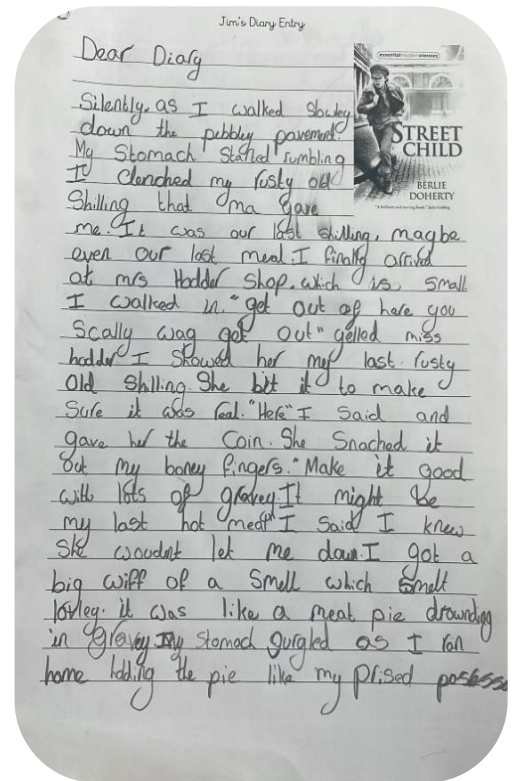 Jim's Diary Entry
Dear Diary
essential modern classics
STREET
CHILD
BERLIE
DOHERTY
Silently. as I walked Slowley
down the pebbley pavement.
My Stomach Started rumbling
I clenched my rusty old
Shilling that ma gave
me. It was our last shilling, maybe
even our last meal. I finally arrived
at mrs Hodder Shop. which is small
I walked in. "get out of here you
Scally wag get out" yelled miss
hodder I Showed her my last. rusty
old Shilling. She bit it to make
Sure it was real. "Here" I Said and
gave her the Coin. She Snached it
out my boney fingers. "Make it good
with lots of gravey. It might be
my last hot meal" I Said I knew
She woudnt let me down. I got a
big wiff of a Smell which Smelt
lovley. it was like a meat pie drownding
in gravey My Stomach gurgled as I ran
home holding the pie like my prised